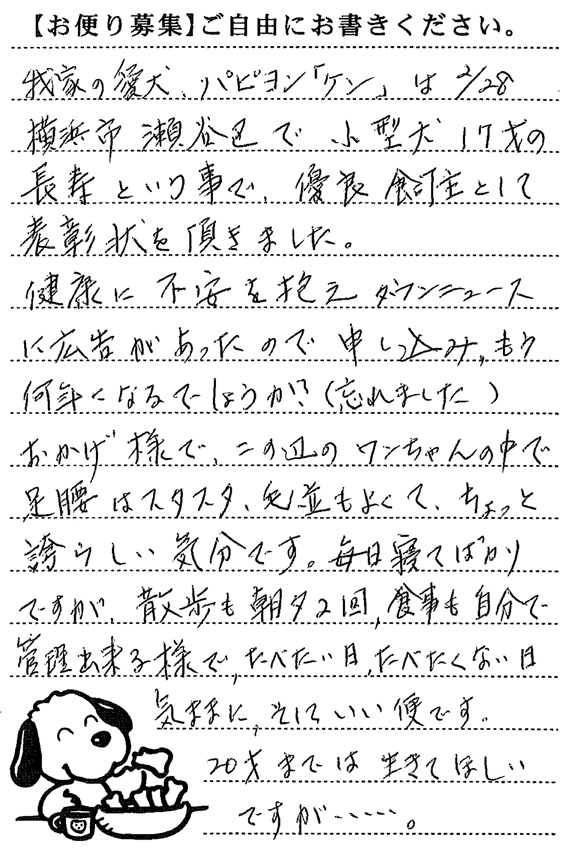 【お便り募集】ご自由にお書きください。
我家の愛犬、パピヨン「ケン」は 2/28
横浜市 瀬谷区で 小型犬 17才の
長寿という事で、優良飼主として
表彰状を頂きました。
健康に 不安を抱え タウンニュース
に広告があったので 申し込み、もう
何年になるでしょうか?(忘れました)
おかげ様で、この辺のワンちゃんの中で
足腰はスタスタ、毛並もよくて、ちょっと
誇らしい気分です。毎日寝てばかり
ですが、散歩も朝夕2回、食事も自分で
管理出来る様で、たべたい日、たべたくない日
気ままに、そしていい便です。
20才までは 生きてほしい
ですが……。